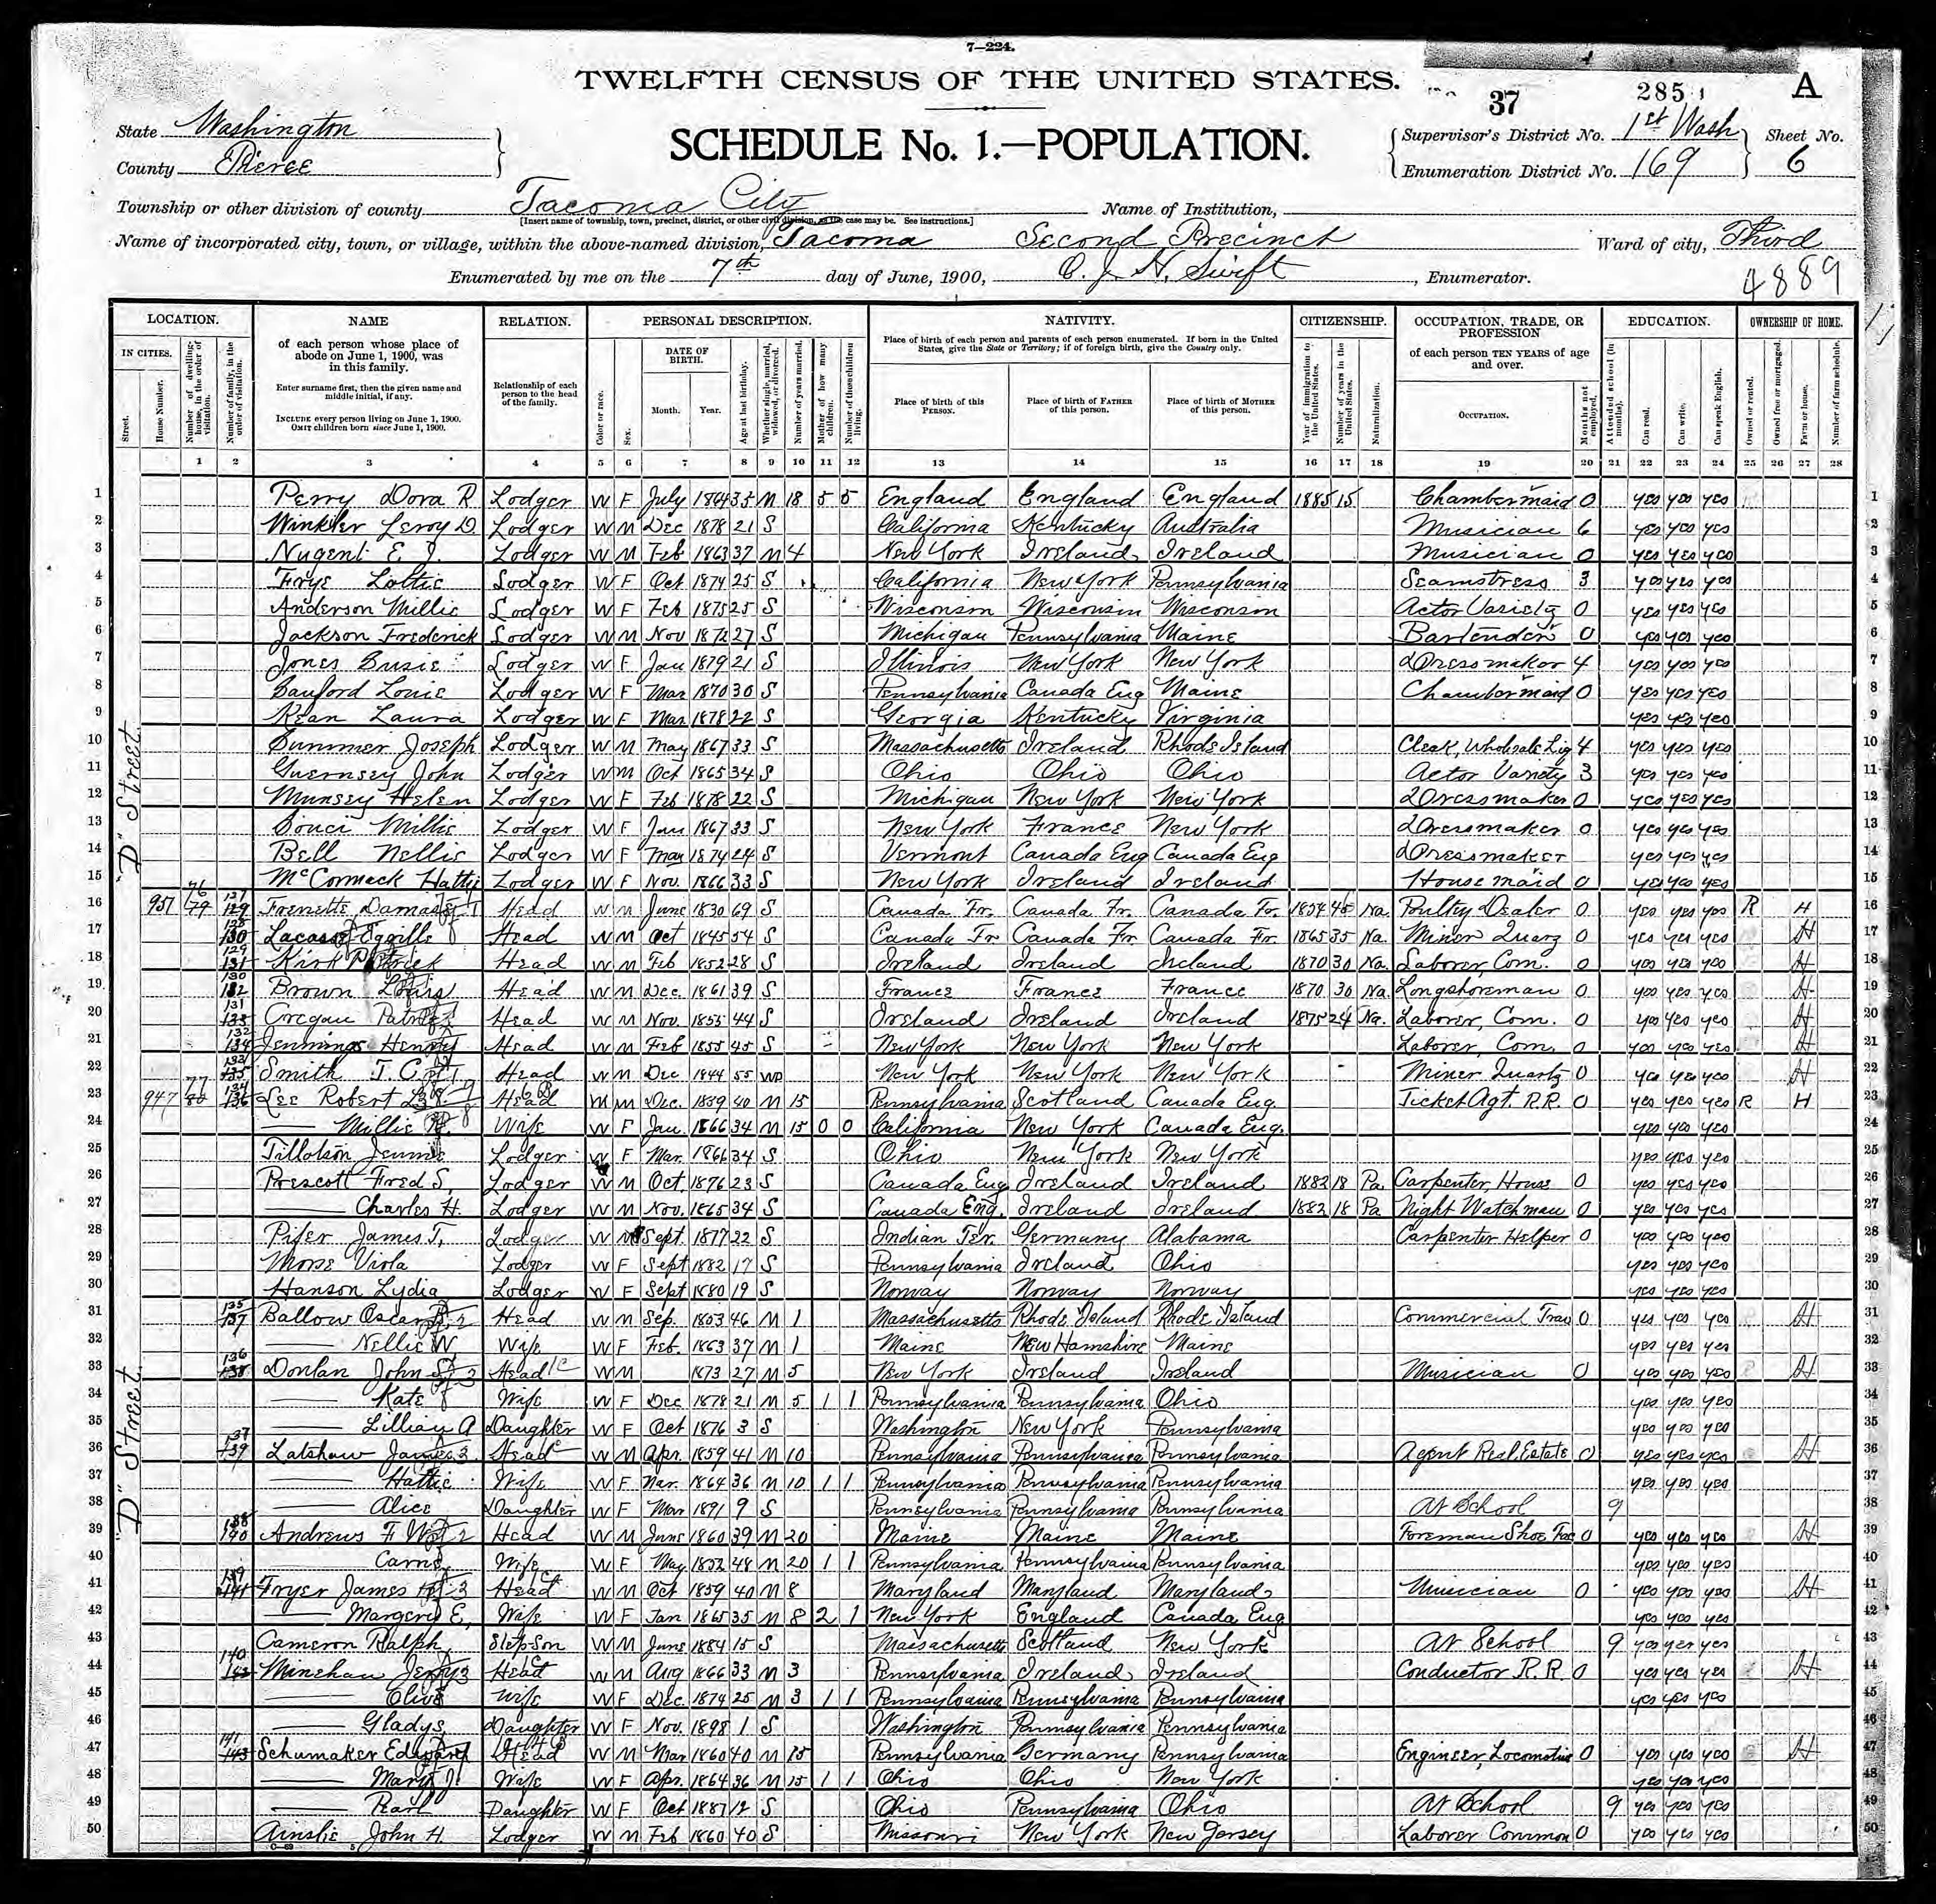 7—224.
TWELFTH CENSUS OF THE UNITED STATES.
37 285 A
State Washington
County Pierce
SCHEDULE No. 1.—POPULATION.
Supervisor's District No. 1st Wash
Enumeration District No. 169
Sheet No. 6
Township or other division of county Tacoma City
[Insert name of township, town, precinct, district, or other civil division, as the case may be. See instructions.]
Name of Institution,
Name of incorporated city, town, or village, within the above-named division, Tacoma Second Precinct Ward of city, Third
Enumerated by me on the 7th day of June, 1900, O. J. H. Swift, Enumerator.
4889
LOCATION. NAME RELATION. PERSONAL DESCRIPTION. NATIVITY. CITIZENSHIP. OCCUPATION, TRADE, OR PROFESSION EDUCATION. OWNERSHIP OF HOME.
IN CITIES.
Street.
House Number.
Number of dwelling-house, in the order of visitation.
Number of family, in the order of visitation.
of each person whose place of abode on June 1, 1900, was in this family.
Enter surname first, then the given name and middle initial, if any.
INCLUDE every person living on June 1, 1900. OMIT children born since June 1, 1900.
Relationship of each person to the head of the family.
Color or race.
Sex.
DATE OF BIRTH.
Month. Year.
Age at last birthday.
Whether single, married, widowed, or divorced.
Number of years married.
Mother of how many children.
Number of these children living.
Place of birth of each person and parents of each person enumerated. If born in the United States, give the State or Territory; if of foreign birth, give the Country only.
Place of birth of this PERSON.
Place of birth of FATHER of this person.
Place of birth of MOTHER of this person.
Year of immigration to the United States.
Number of years in the United States.
Naturalization.
of each person TEN YEARS of age and over.
OCCUPATION.
Months not employed.
Attended school (in months).
Can read.
Can write.
Can speak English.
Owned or rented.
Owned free or mortgaged.
Farm or house.
Number of farm schedule.
1 2 3 4 5 6 7 8 9 10 11 12 13 14 15 16 17 18 19 20 21 22 23 24 25 26 27 28
"D" Street
1 Perry Dora R Lodger W F July 1864 35 M 18 5 5 England England England 1885 15 Chambermaid 0 yes yes yes 1
2 Winkler Leroy D. Lodger W M Dec 1878 21 S California Kentucky Australia Musician 6 yes yes yes 2
3 Nugent E. J. Lodger W M Feb 1863 37 M 4 New York Ireland Ireland Musician 0 yes yes yes 3
4 Frye Lottie Lodger W F Oct 1874 25 S California New York Pennsylvania Seamstress 3 yes yes yes 4
5 Anderson Millie Lodger W F Feb 1875 25 S Wisconsin Wisconsin Wisconsin Actor Variety 0 yes yes yes 5
6 Jackson Frederick Lodger W M Nov 1872 27 S Michigan Pennsylvania Maine Bartender 0 yes yes yes 6
7 Jones Susie Lodger W F Jan 1879 21 S Illinois New York New York Dressmaker 4 yes yes yes 7
8 Sanford Louie Lodger W F Mar 1870 30 S Pennsylvania Canada Eng Maine Chambermaid 0 yes yes yes 8
9 Kean Laura Lodger W F Mar 1878 22 S Georgia Kentucky Virginia yes yes yes 9
10 Summer Joseph Lodger W M May 1867 33 S Massachusetts Ireland Rhode Island Clerk, Wholesale Liq 4 yes yes yes 10
11 Guernsey John Lodger W M Oct 1865 34 S Ohio Ohio Ohio Actor Variety 3 yes yes yes 11
12 Munsey Helen Lodger W F Feb 1878 22 S Michigan New York New York Dressmaker 0 yes yes yes 12
13 Souci Millie Lodger W F Jan 1867 33 S New York France New York Dressmaker 0 yes yes yes 13
14 Bell Nellie Lodger W F Mar 1874 24 S Vermont Canada Eng Canada Eng Dressmaker yes yes yes 14
15 McCormack Hattie Lodger W F Nov. 1866 33 S New York Ireland Ireland Housemaid 0 yes yes yes 15
16 951 76 79 127 129 Frenette Damas Head W M June 1830 69 S Canada Fr. Canada Fr. Canada Fr. 1854 45 Na. Poultry Dealer 0 yes yes yes R H 16
17 128 130 Lacasse Head W M Oct 1845 54 S Canada Fr Canada Fr Canada Fr. 1865 35 Na. Miner Quarz 0 yes yes yes H 17
18 129 131 Kirk Patrick Head W M Feb 1852 28 S Ireland Ireland Ireland 1870 30 Na. Laborer, Com. 0 yes yes yes H 18
19 130 132 Brown Louis Head W M Dec. 1861 39 S France France France 1870 30 Na. Longshoreman 0 yes yes yes H 19
20 131 133 Cregan Patrick Head W M Nov. 1855 44 S Ireland Ireland Ireland 1875 24 Na. Laborer, Com. 0 yes yes yes H 20
21 132 134 Jennings Henry Head W M Feb 1855 45 S New York New York New York Laborer, Com. 0 yes yes yes H 21
22 133 135 Smith T. C. Head W M Dec 1844 55 Wd New York New York New York Miner Quartz 0 yes yes yes H 22
23 947 77 80 134 136 Lee Robert Head M M Dec. 1859 40 M 15 Pennsylvania Scotland Canada Eng. Ticket Agt. R.R. 0 yes yes yes R H 23
24 —— Millie R. Wife W F Jan. 1866 34 M 15 0 0 California New York Canada Eng. yes yes yes 24
25 Tillotson Jennie Lodger W F Mar. 1866 34 S Ohio New York New York yes yes yes 25
26 Prescott Fred S. Lodger W M Oct. 1876 23 S Canada Eng Ireland Ireland 1882 18 Pa. Carpenter, House 0 yes yes yes 26
27 —— Charles H. Lodger W M Nov. 1865 34 S Canada Eng. Ireland Ireland 1882 18 Pa Night Watchman 0 yes yes yes 27
28 Pifer James T. Lodger W M Sept. 1877 22 S Indian Ter. Germany Alabama Carpenter Helper 0 yes yes yes 28
29 Morse Viola Lodger W F Sept 1882 17 S Pennsylvania Ireland Ohio yes yes yes 29
30 Hanson Lydia Lodger W F Sept 1880 19 S Norway Norway Norway yes yes yes 30
"D" Street
31 135 137 Ballow Oscar Head W M Sep. 1853 46 M 1 Massachusetts Rhode Island Rhode Island Commercial Trav 0 yes yes yes H 31
32 —— Nellie W. Wife W F Feb. 1863 37 M 1 Maine New Hamshire Maine yes yes yes 32
33 136 138 Donlan John Head W M 1873 27 M 5 New York Ireland Ireland Musician 0 yes yes yes H 33
34 —— Kate Wife W F Dec 1878 21 M 5 1 1 Pennsylvania Pennsylvania Ohio yes yes yes 34
35 —— Lillian A Daughter W F Oct 1876 3 S Washington New York Pennsylvania yes yes yes 35
36 137 139 Latshaw James Head W M Apr. 1859 41 M 10 Pennsylvania Pennsylvania Pennsylvania Agent Real Estate 0 yes yes yes H 36
37 —— Hattie Wife W F Mar. 1864 36 M 10 1 1 Pennsylvania Pennsylvania Pennsylvania yes yes yes 37
38 —— Alice Daughter W F Mar 1891 9 S Pennsylvania Pennsylvania Pennsylvania At School 9 38
39 138 140 Andrews F. W. Head W M June 1860 39 M 20 Maine Maine Maine Foreman Shoe Fac 0 yes yes yes H 39
40 —— Carrie Wife W F May 1852 48 M 20 1 1 Pennsylvania Pennsylvania Pennsylvania yes yes yes 40
41 139 141 Fryer James Head W M Oct 1859 40 M 8 Maryland Maryland Maryland Musician 0 yes yes yes H 41
42 —— Margery E. Wife W F Jan 1865 35 M 8 2 1 New York England Canada Eng yes yes yes 42
43 Cameron Ralph Step Son W M June 1884 15 S Massachusetts Scotland New York At School 9 yes yes yes 43
44 140 142 Minehan Jerry Head W M Aug 1866 33 M 3 Pennsylvania Ireland Ireland Conductor R.R. 0 yes yes yes H 44
45 —— Olive Wife W F Dec. 1874 25 M 3 1 1 Pennsylvania Pennsylvania Pennsylvania yes yes yes 45
46 —— Gladys Daughter W F Nov. 1898 1 S Washington Pennsylvania Pennsylvania 46
47 141 143 Schumaker Edward Head W M Mar 1860 40 M 15 Pennsylvania Germany Pennsylvania Engineer, Locomotive 0 yes yes yes H 47
48 —— Mary J. Wife W F Apr. 1864 36 M 15 1 1 Ohio Ohio New York yes yes yes 48
49 —— Pearl Daughter W F Oct 1887 12 S Ohio Pennsylvania Ohio At School 9 yes yes yes 49
50 Ainslie John H. Lodger W M Feb 1860 40 S Missouri New York New Jersey Laborer Common 0 yes yes yes 50